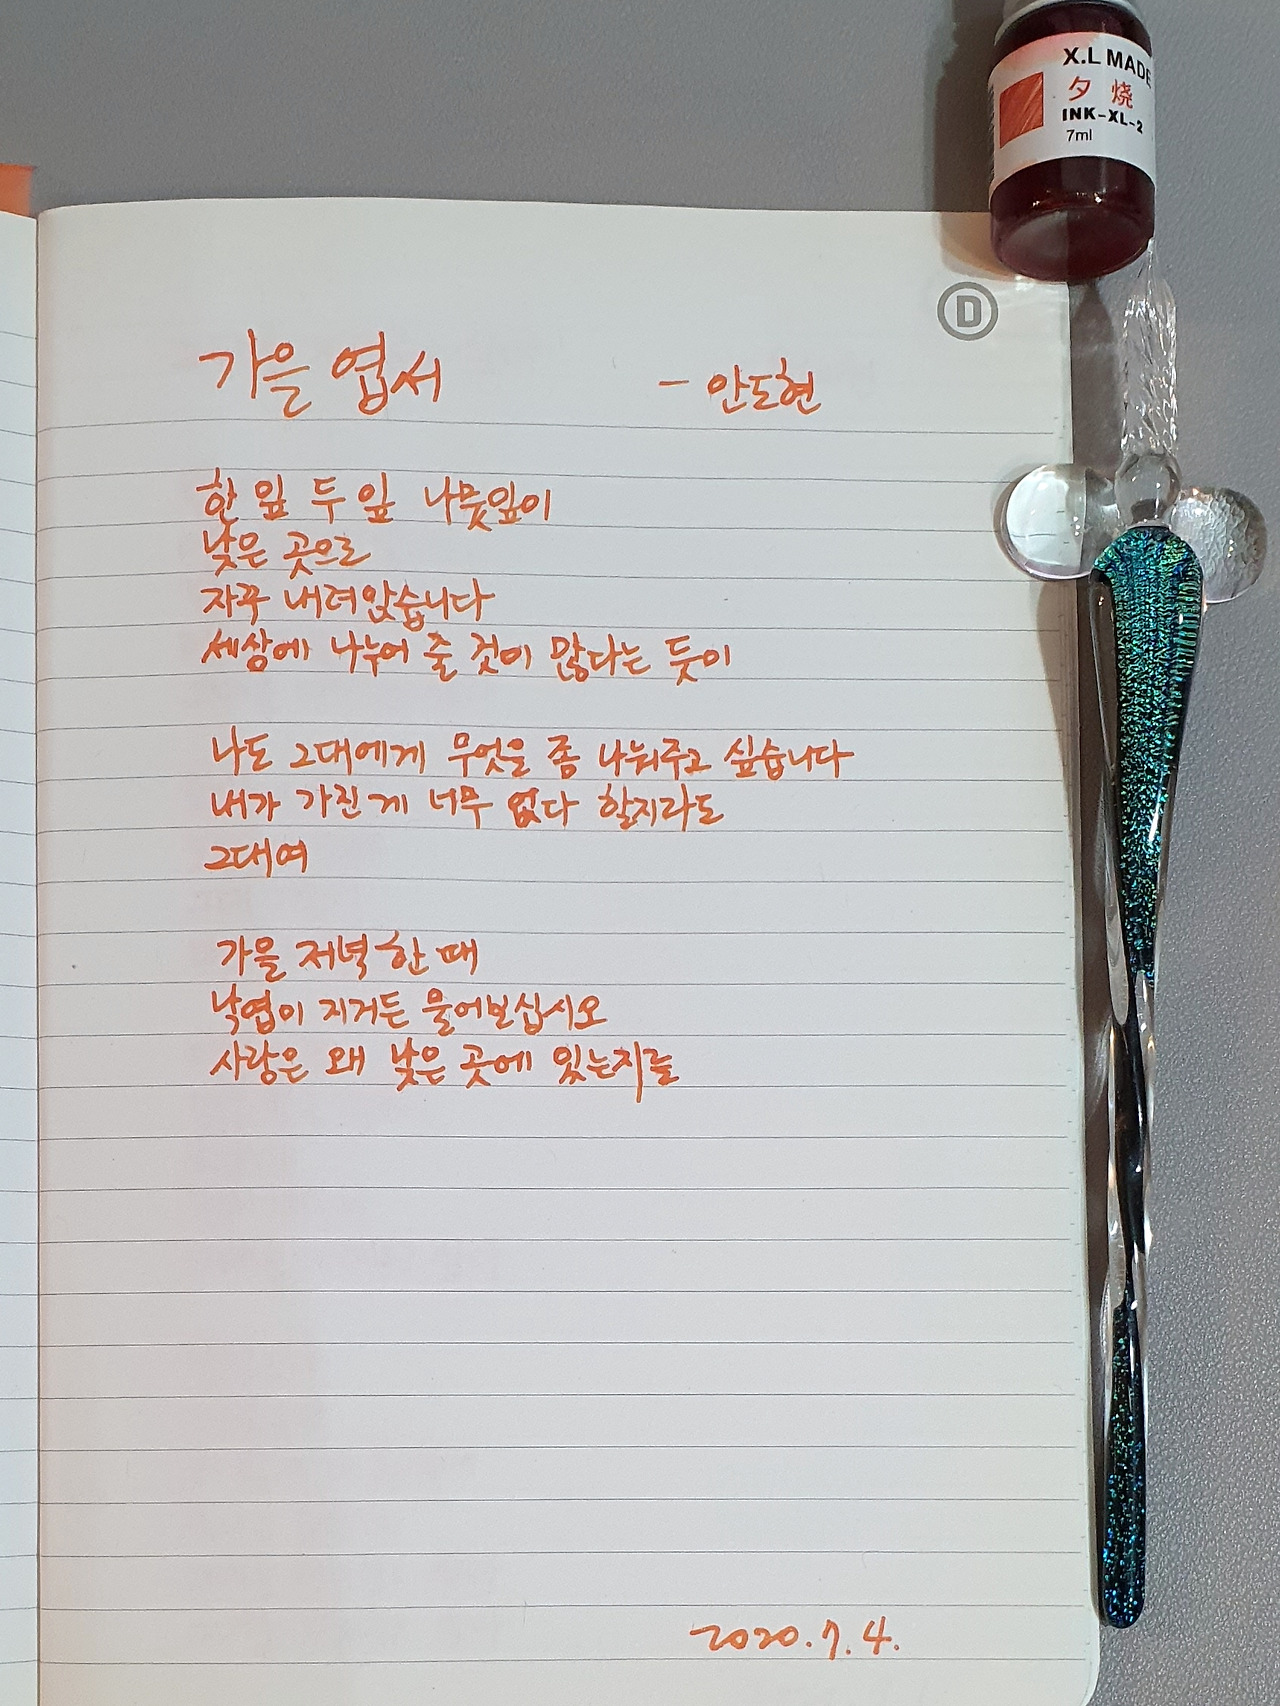 X.L MADE
夕烧
INK-XL-2
7ml
D
가을 엽서 - 안도현
한 잎 두 잎 나뭇잎이
낮은 곳으로
자꾸 내려앉습니다
세상에 나누어 줄 것이 많다는 듯이
나도 그대에게 무엇을 좀 나눠주고 싶습니다
내가 가진 게 너무 없다 할지라도
그대여
가을 저녁 한 때
낙엽이 지거든 물어보십시오
사랑은 왜 낮은 곳에 있는지를
2020.7.4.